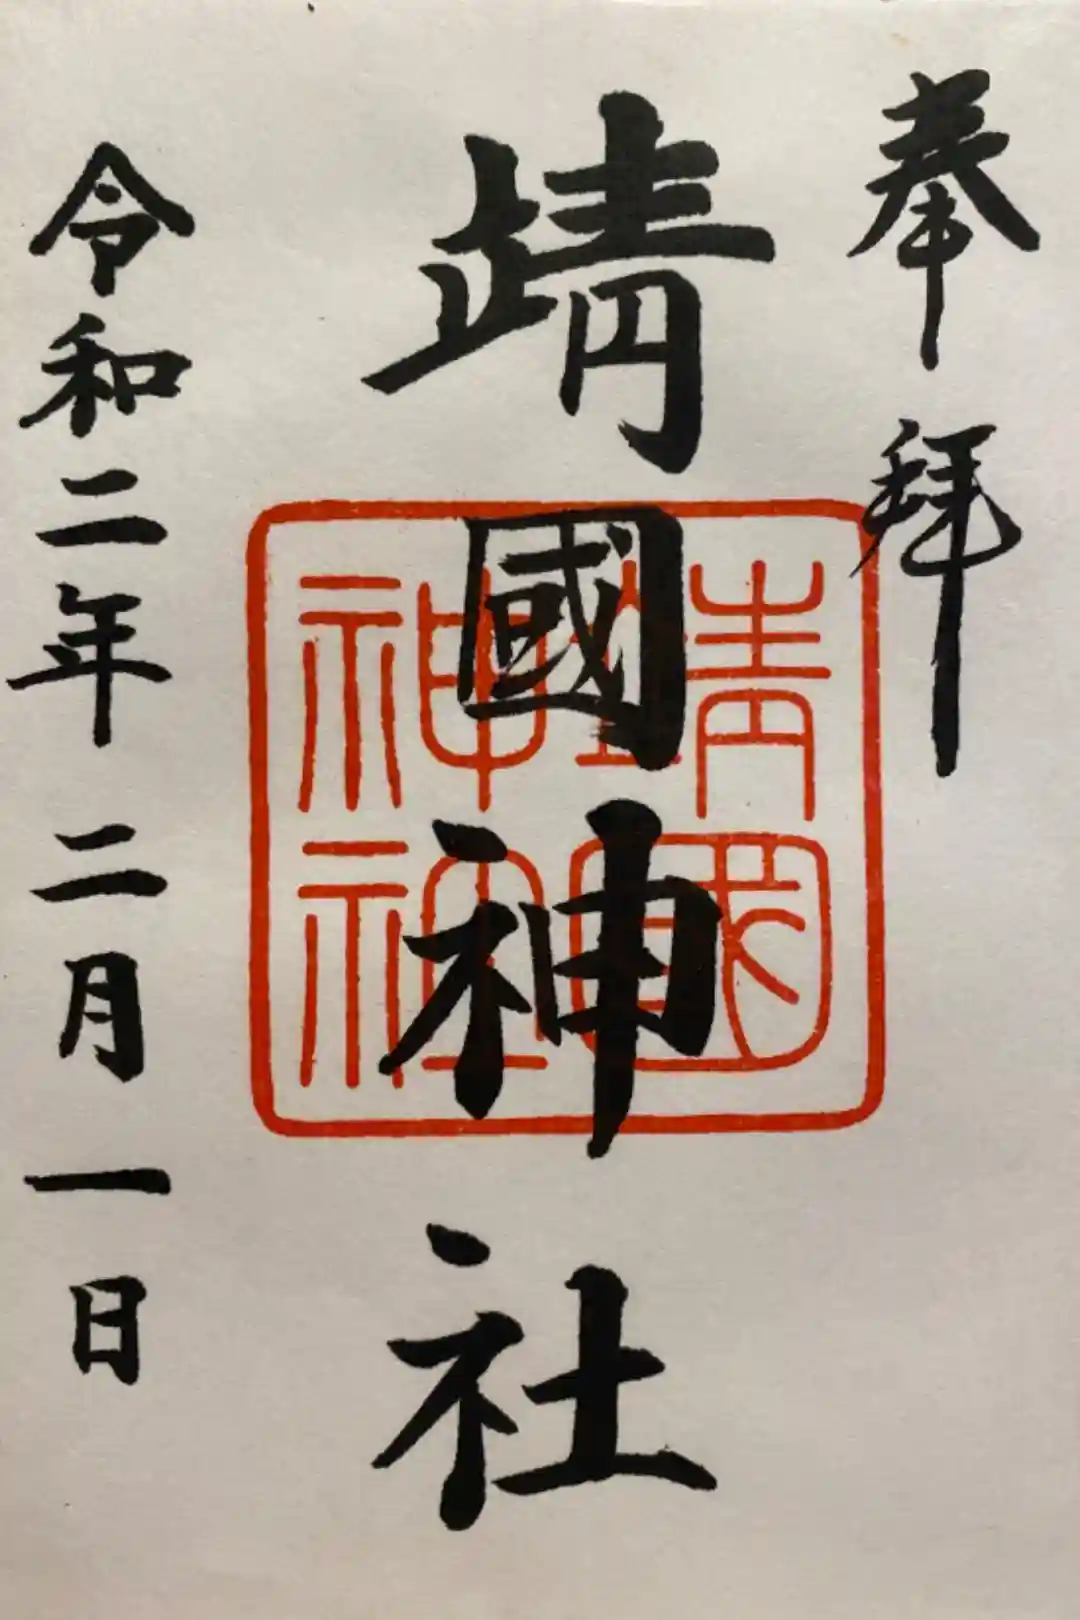 奉拝
靖國神社
靖國神社
令和二年二月一日